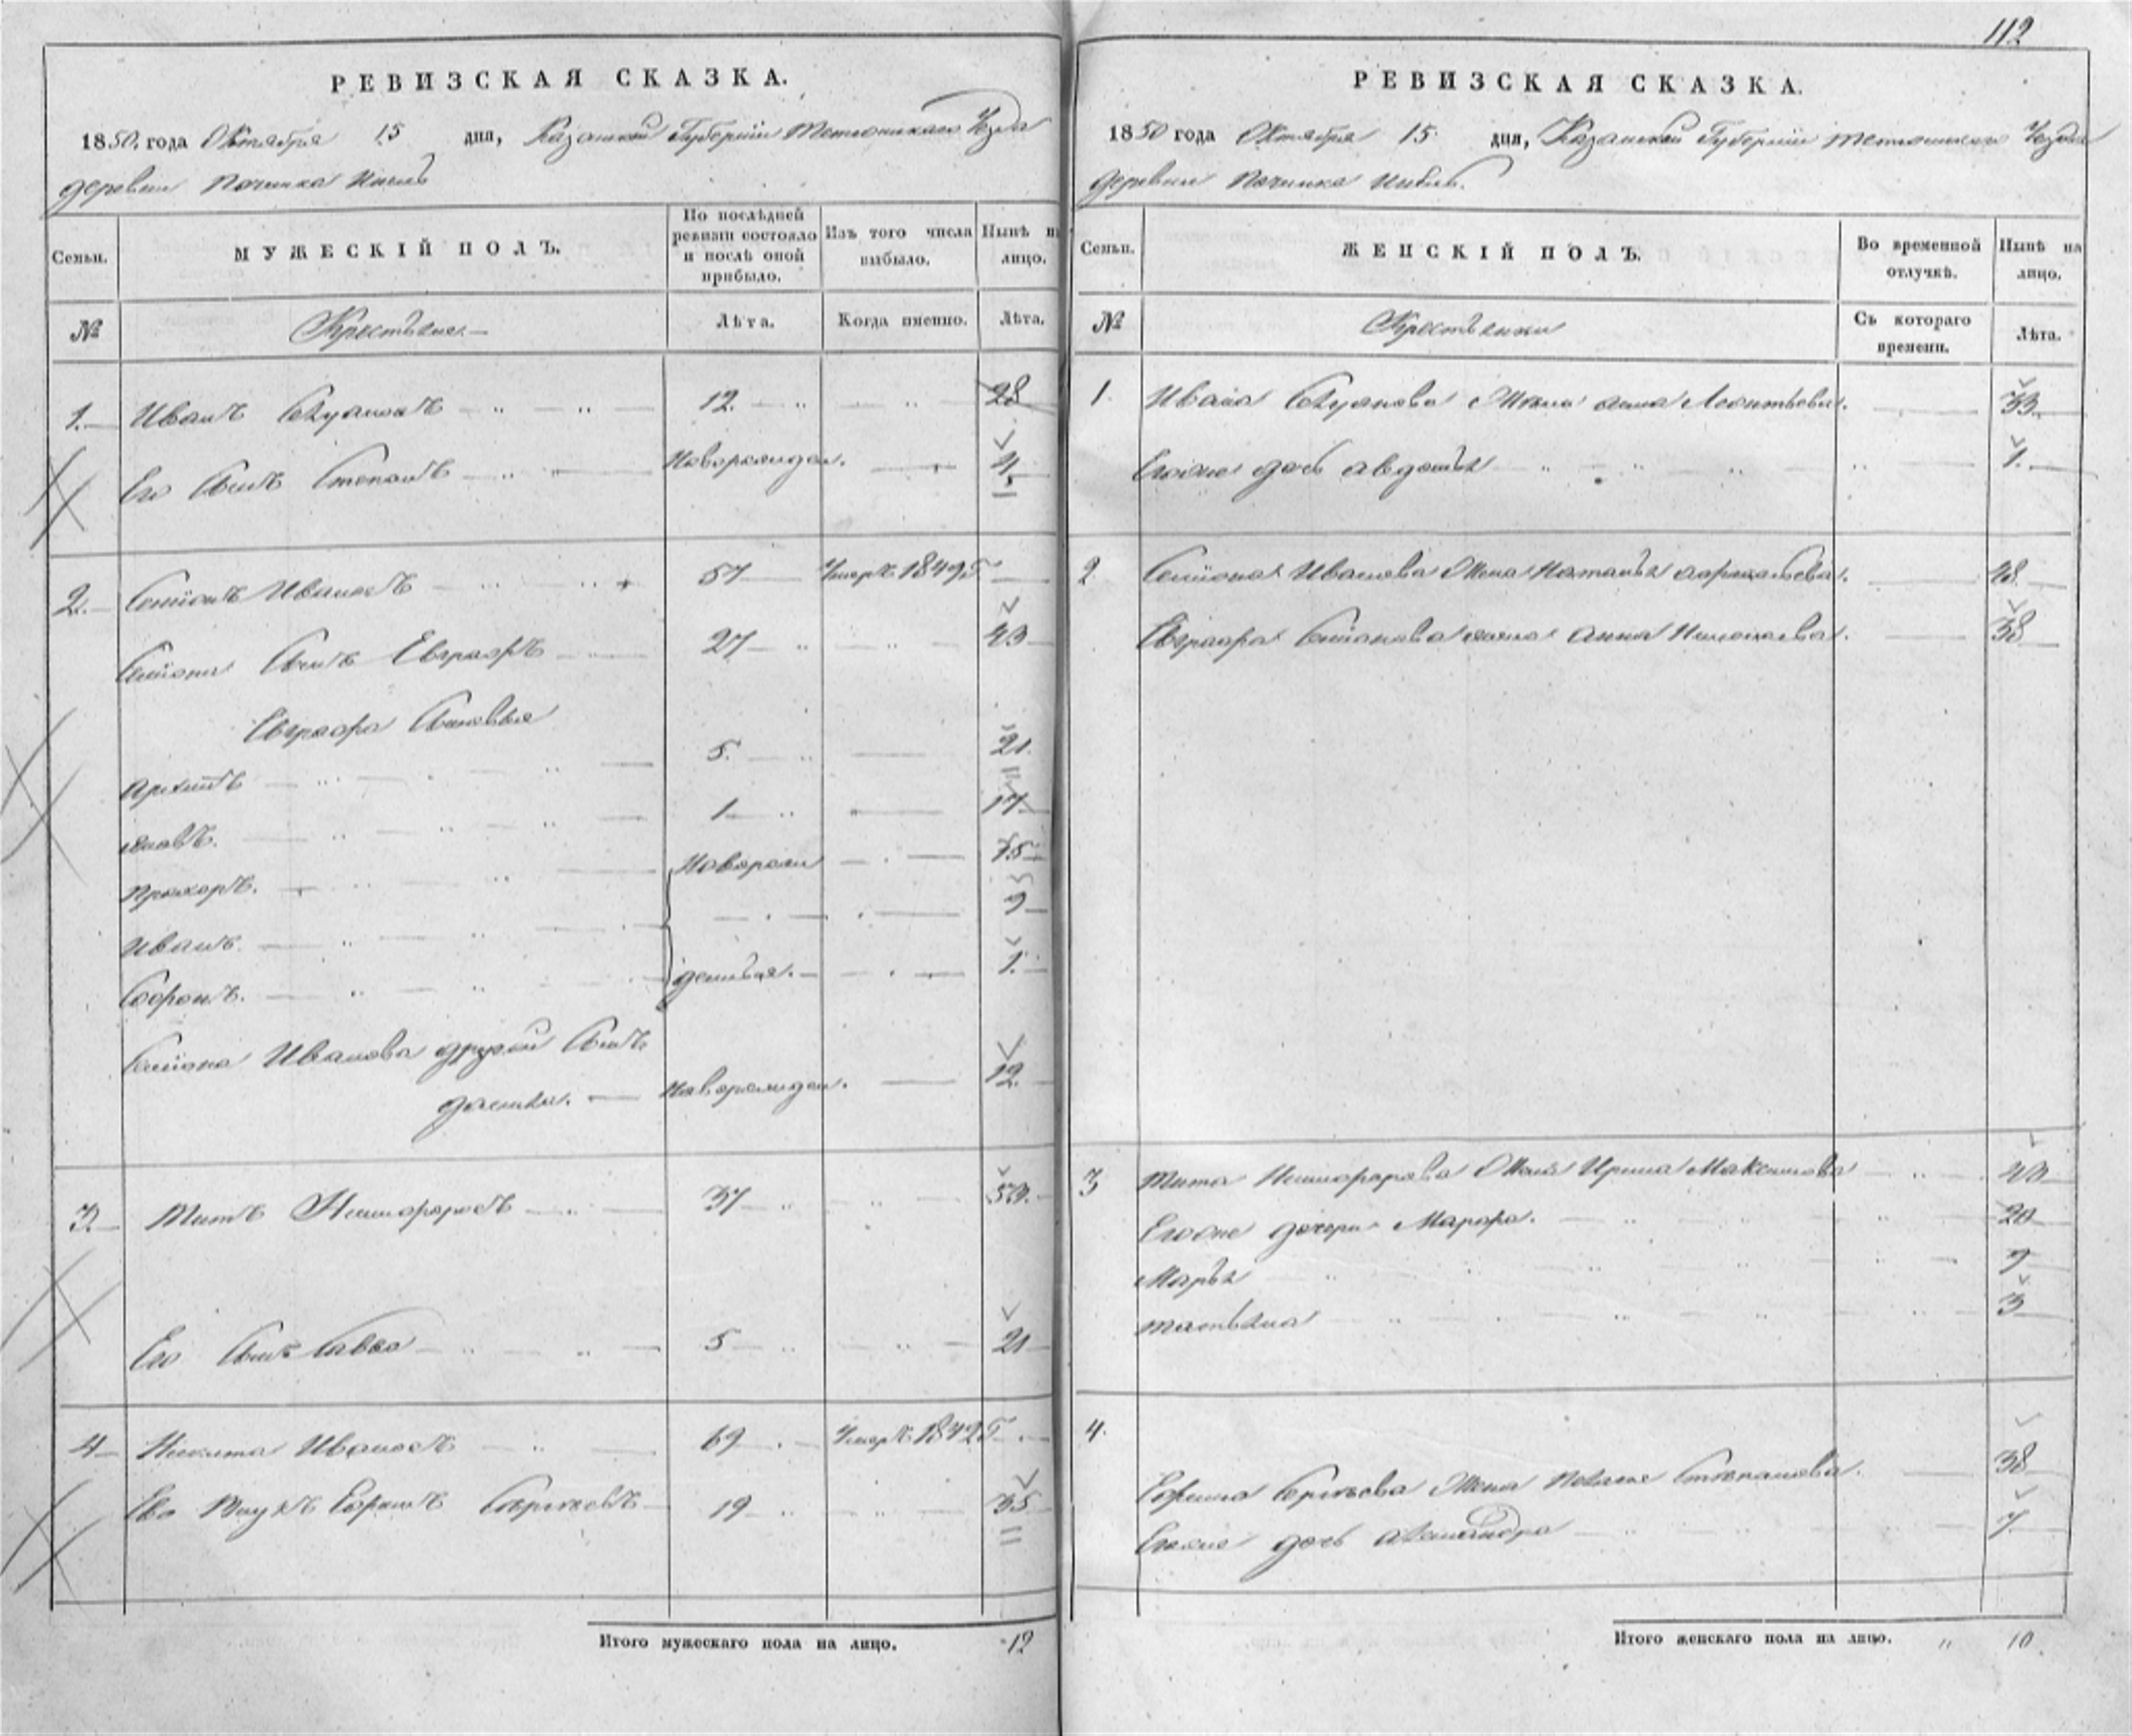 112
РЕВИЗСКАЯ СКАЗКА.
1850. года Октября 15 дня, Казанской Губерніи Тетюшскаго Уѣзда
деревни Починка
Семьи.
МУЖЕСКІЙ ПОЛЪ.
По послѣдней ревизіи состояло и послѣ оной прибыло.
Изъ того числа выбыло.
Нынѣ на лицо.
№
Крестьяне.
Лѣта.
Когда именно.
Лѣта.
1. Иванъ 12. 28
Его Сынъ Степанъ Новорожден. 4
2. Семіонъ Ивановъ 57 Умеръ 1849 Г
Семіона Сынъ Евграфъ 27 43
Евграфа Сыновья
Архипъ 5. 21.
1 17
Прохоръ. Новорож 15
Иванъ. 9
Софронъ. денные. 1.
Семіона Иванова другой Сынъ
Новорожден. 12.
3. Титъ Никифоровъ 37 53.
Его Сынъ Савва 5 21
4 Никита Ивановъ 69 Умеръ 1842 Г
Ево Внукъ Ефимъ Сергѣевъ 19 35
Итого мужескаго пола на лицо. 12
РЕВИЗСКАЯ СКАЗКА.
1850 года Октября 15 дня, Казанской Губерніи Тетюшскаго Уѣзда
деревни Починка
Семьи.
ЖЕНСКІЙ ПОЛЪ.
Во временной отлучкѣ.
Нынѣ на лицо.
№
Крестьянки
Съ котораго времени.
Лѣта.
1. Ивана Жена Анна Леонтьева. 33
Егоже дочь Авдотья 1.
2 Семіона Иванова Жена Наталья 48
Евграфа Семіонова жена Анна Николаева. 38
3 Тита Никифорова Жена Ирина Максимова 43
Егоже дочери Марфа. 20
Марья 9
Татьяна 3
4.
Ефима Сергѣева Жена Степанова. 38
Егоже дочь Александра 7
Итого женскаго пола на лицо. 10